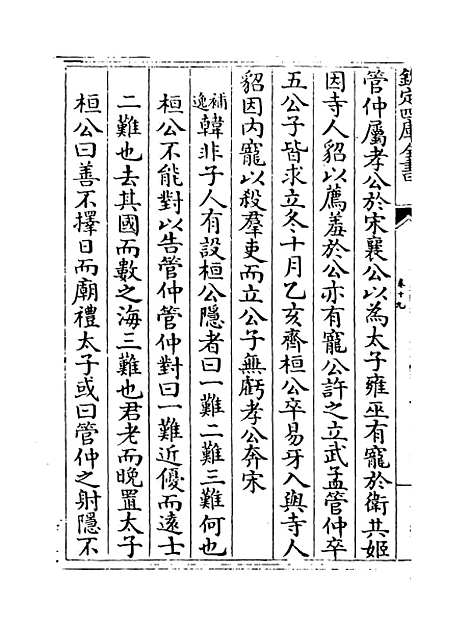 欽定四庫全書
卷十九
管仲屬孝公於宋襄公以為太子雍巫有寵於衛共姬
因寺人貂以薦羞於公亦有寵公許之立武孟管仲卒
五公子皆求立冬十月乙亥齊桓公卒易牙入與寺人
貂因内寵以殺羣吏而立公子無虧孝公奔宋
補逸韓非子人有設桓公隱者曰一難二難三難何也
桓公不能對以告管仲管仲對曰一難近優而逺士
二難也去其國而數之海三難也君老而晚置太子
桓公曰善不擇日而廟禮太子或曰管仲之射隱不